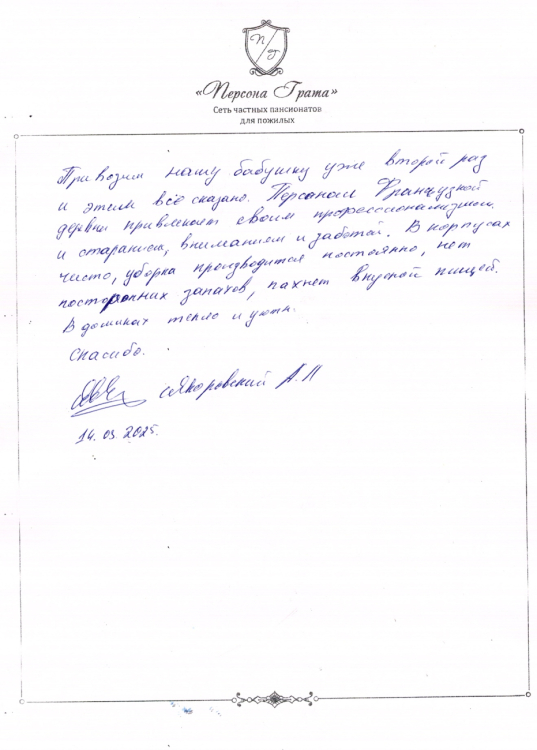 П Г
«Персона Грата»
Сеть частных пансионатов
для пожилых
Привозим нашу бабушку уже второй раз
и этим всё сказано. Персонал Французкой
деревни привлекает своим профессионализмом
и старанием, вниманием и заботой. В корпусах
чисто, уборка производится постоянно, нет
посторонних запахов, пахнет вкусной пищей.
В домиках тепло и уютн.
Спасибо.
А. П
14.03.2025.